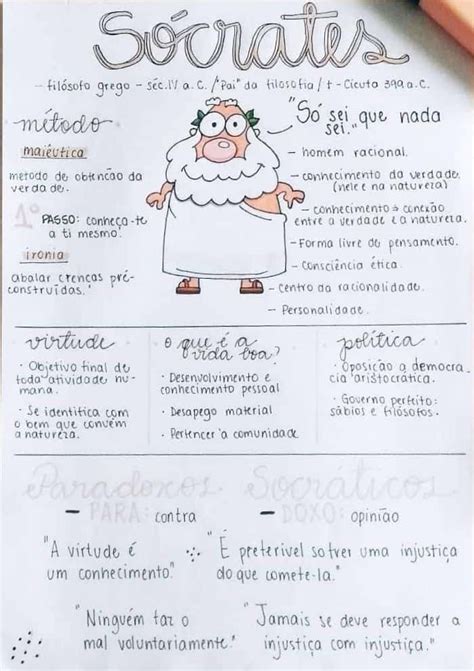 Sócrates
- filósofo grego - séc. IV a.C. / "Pai" da filosofia / † - Cicuta 399 a.C.
método
maiêutica
método de obtenção da
verdade.
1º PASSO: conheça-te
a ti mesmo.
ironia
abalar crenças pré-
construídas.
"Só sei que nada
sei."
- homem racional.
- conhecimento da verdade.
(nele e na natureza)
- conhecimento → conexão
entre a verdade e a natureza.
- Forma livre de pensamento.
- Consciência ética.
- Centro da racionalidade.
- Personalidade.
virtude
· Objetivo final de
toda atividade hu-
mana.
· Se identifica com
o bem que convém
a natureza.
o que é a
vida boa?
· Desenvolvimento e
conhecimento pessoal
· Desapego material
· Pertencer à comunidade
política
· Oposição a democra-
cia aristocrática.
· Governo perfeito:
sábios e filósofos.
Paradoxos Socráticos
- PARA: contra
- DOXO: opinião
"A virtude é
um conhecimento."
"É preferível sofrer uma injustiça
do que cometê-la."
"Ninguém faz o
mal voluntariamente."
"Jamais se deve responder a
injustiça com injustiça."